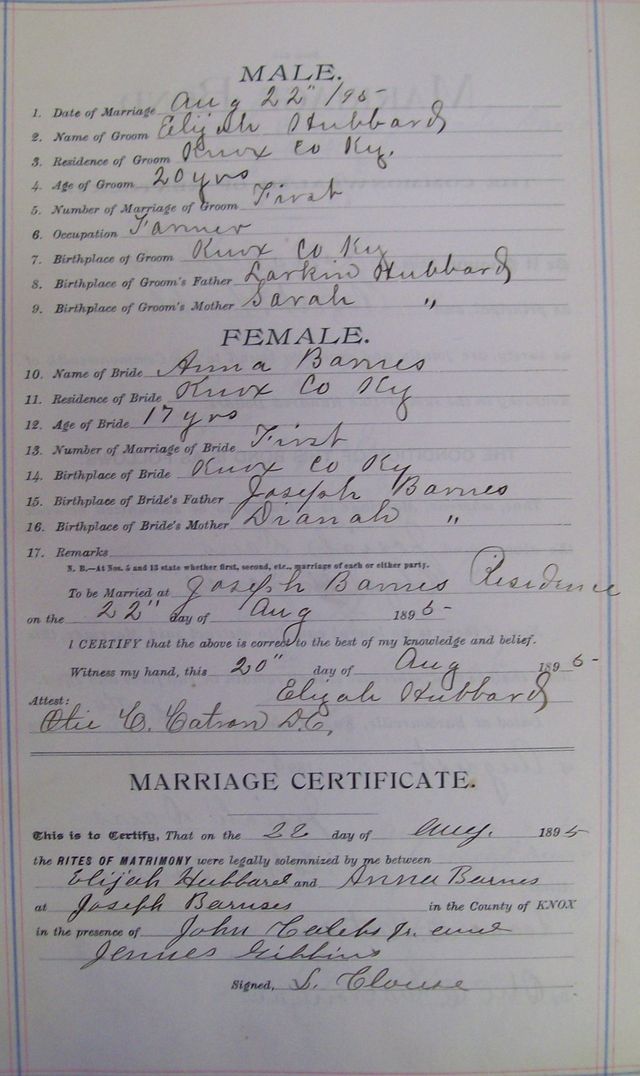 MALE.
1. Date of Marriage Aug 22" /95
2. Name of Groom Elijah Hubbard
3. Residence of Groom Knox Co Ky.
4. Age of Groom 20 yrs
5. Number of Marriage of Groom First
6. Occupation Farmer
7. Birthplace of Groom Knox Co Ky
8. Birthplace of Groom's Father Larkin Hubbard
9. Birthplace of Groom's Mother Sarah "
FEMALE.
10. Name of Bride Anna Barnes
11. Residence of Bride Knox Co Ky
12. Age of Bride 17 yrs
13. Number of Marriage of Bride First
14. Birthplace of Bride Knox Co Ky
15. Birthplace of Bride's Father Joseph Barnes
16. Birthplace of Bride's Mother Dianah "
17. Remarks
N. B.—At Nos. 5 and 13 state whether first, second, etc., marriage of each or either party.
To be Married at Joseph Barnes Residence
on the 22" day of Aug 1895
I CERTIFY that the above is correct to the best of my knowledge and belief.
Witness my hand, this 20" day of Aug 1895
Elijah Hubbard
Attest:
Otie C. Catron D.C.
MARRIAGE CERTIFICATE.
This is to Certify, That on the 22 day of Aug. 1895
the RITES OF MATRIMONY were legally solemnized by me between
Elijah Hubbard and Anna Barnes
at Joseph Barnses in the County of KNOX
in the presence of John Calebs Jr. and
Jennes Gibbins
Signed, S. Clouse